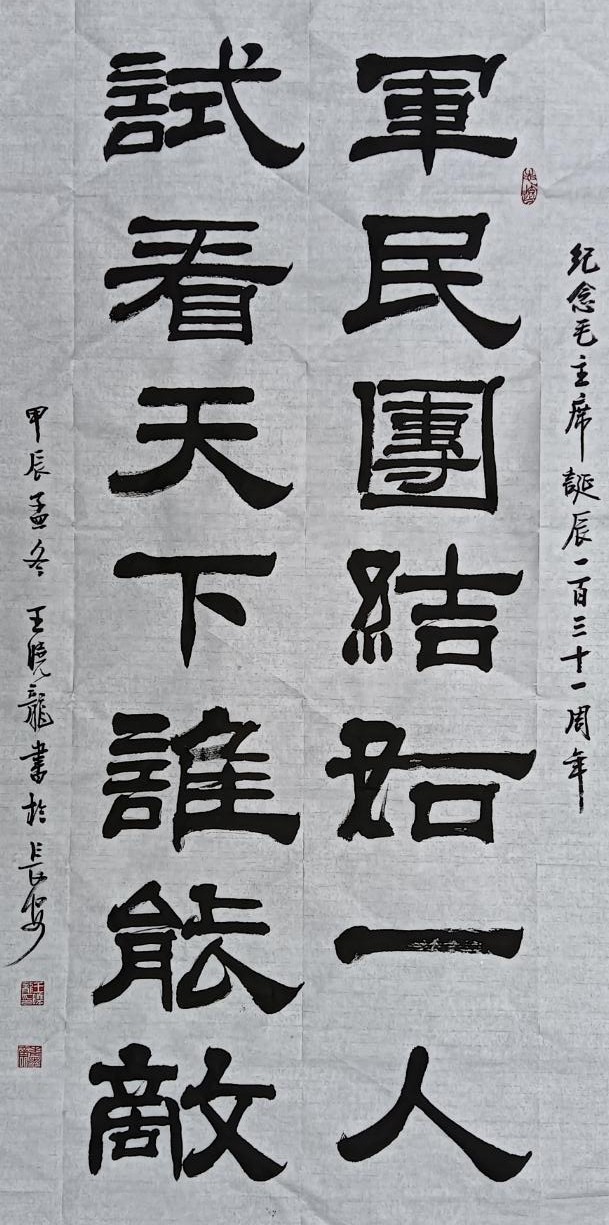 紀念毛主席誕辰一百三十一周年
軍民團結如一人
試看天下誰能敵
甲辰孟冬 王曉龍書於長安